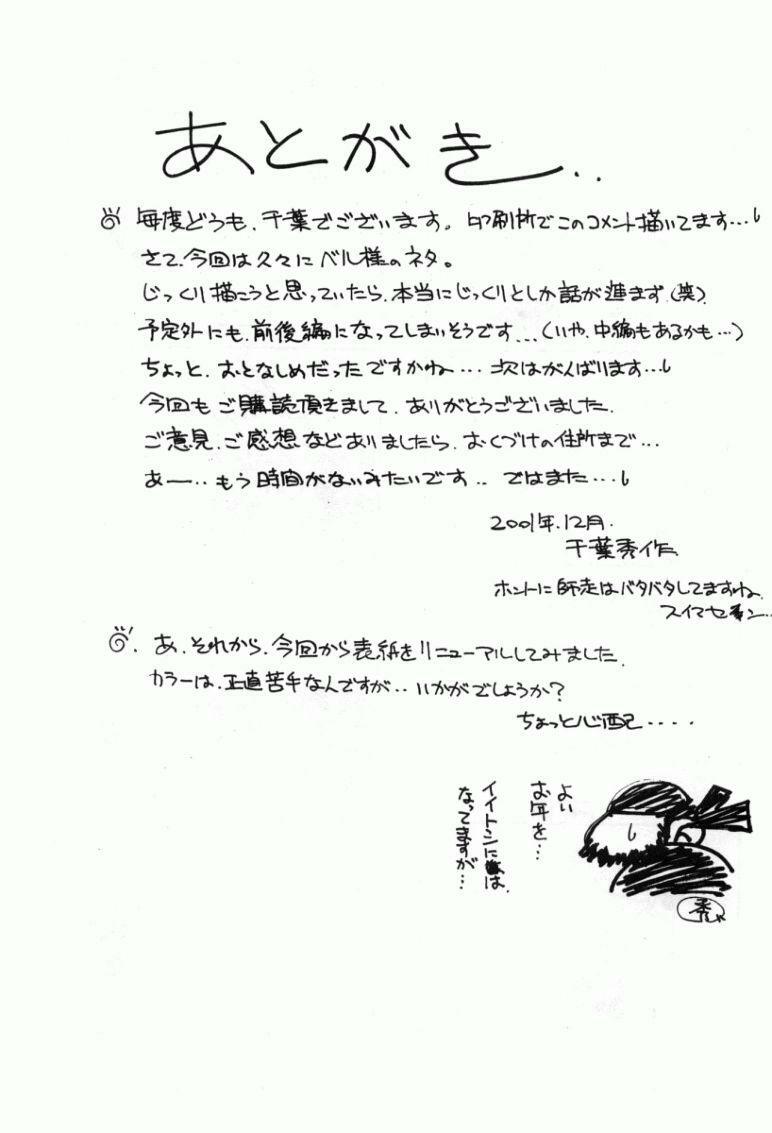 あとがき..
毎度どうも、千葉でございます。印刷所でこのコメント描いてます…
さて、今回は久々にベル様のネタ。
じっくり描こうと思っていたら、本当にじっくりとしか話が進まず(笑)、
予定外にも、前後編になってしまいそうです…(いや、中編もあるかも…)
ちょっと、おとなしめだったですかね…次はがんばります…
今回もご購読頂きまして、ありがとうございました。
ご意見、ご感想などありましたら、おくづけの住所まで…
あー‥もう時間がないみたいです‥ ではまた…
2001年.12月.
千葉秀作
ホントに師走はバタバタしてますね。
スイマセン…
あ、それから、今回から表紙をリニューアルしてみました。
カラーは、正直苦手なんですが‥いかがでしょうか?
ちょっと心配....
よい
お年を…
イイトシには
なってますが…
秀